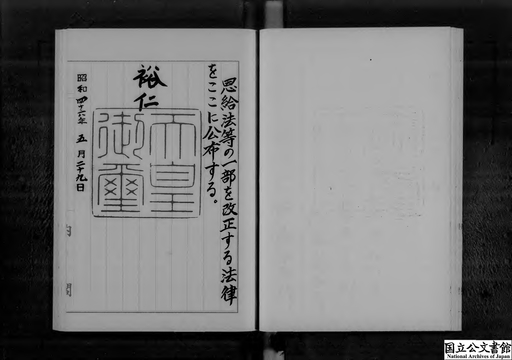 恩給法等の一部を改正する法律
をここに公布する。
裕仁
天皇
御璽
昭和四十六年五月二十九日
国立公文書館
National Archives of Japan